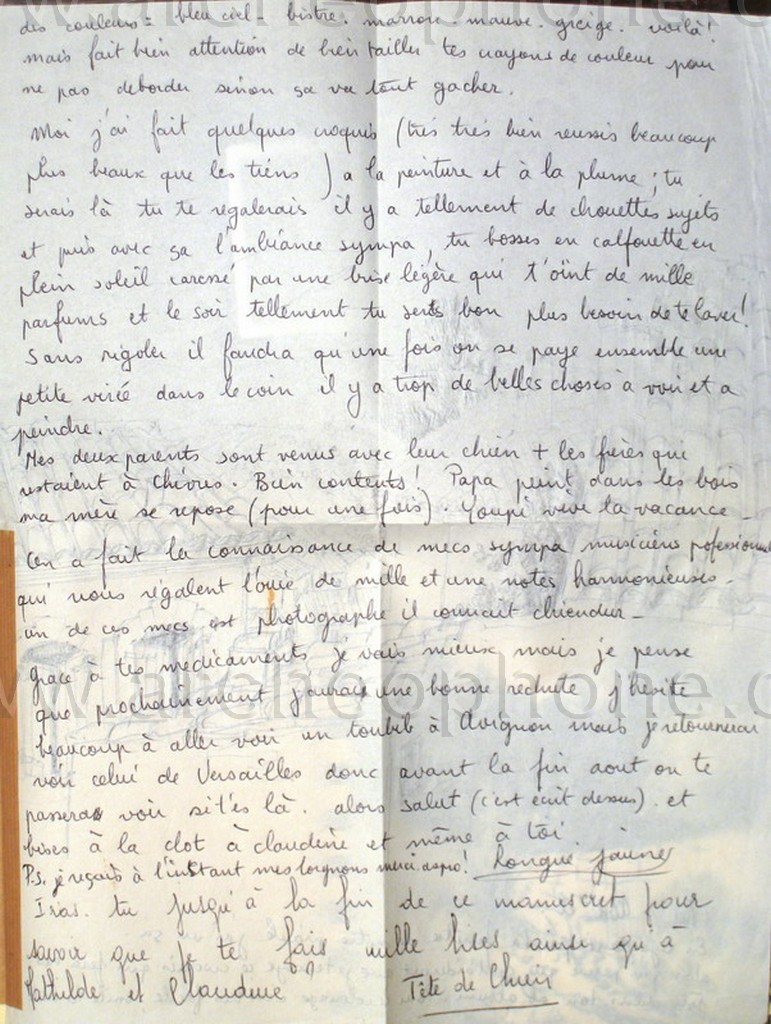 des couleurs = bleu ciel - bistre. marron. mauve. greige. voilà!
mais fait bien attention de bien tailler tes crayons de couleur pour
ne pas deborder sinon sa va tout gacher.
Moi j'ai fait quelques croquis (très très bien reussis beaucoup
plus beaux que les tiens) a la peinture et à la plume; tu
serais là tu te régalerais il y a tellement de chouettes sujets
et puis avec sa l'ambiance sympa, tu bosses en calfouette en
plein soleil caressé par une brise légère qui t'oint de mille
parfums et le soir tellement tu sens bon plus besoin de te laver!
Sans rigoler il faudra qu'une fois on se paye ensemble une
petite virée dans le coin il y a trop de belles choses à voir et a
peindre.
Mes deux parents sont venus avec leur chien + les frères qui
restaient à Chèvres. Bien contents! Papa peint dans les bois
ma mère se repose (pour une fois). Youpi vive la vacance -
On a fait la connaissance de mecs sympa musiciens professionnels
qui nous régalent l'ouïe de mille et une notes harmonieuses -
un de ces mecs est photographe il connait chiendur -
grace à tes medicaments je vais mieux mais je pense
que prochainement j'aurais une bonne rechute j'hesite
beaucoup à aller voir un toubib à Avignon mais je retournerai
voir celui de Versailles donc avant la fin aout on te
passera voir si t'es là. alors salut (c'est écrit dessus). et
bises à la clot à claudine et même à toi.
P.S. je reçois à l'instant mes lorgnons merci aspro! Longue jaine
Iras tu jusqu'à la fin de ce manuscret pour
savoir que je te fais mille bises ainsi qu'à
Mathilde et Claudine Tête de Chien